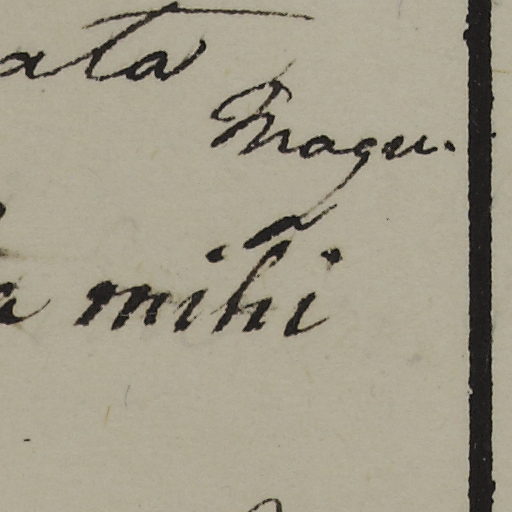 ata
Magu.
a mihi